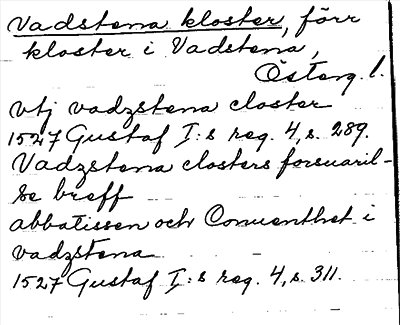 Vadstena kloster, förr
kloster i Vadstena,
Österg. l.
vtj vadzstena closter
1527 Gustaf I:s reg. 4, s. 289.
Vadzstena closters forsuaril-
se breff
abbatissen och Conuenthet i
vadzstena
1527 Gustaf I:s reg. 4, s. 311.